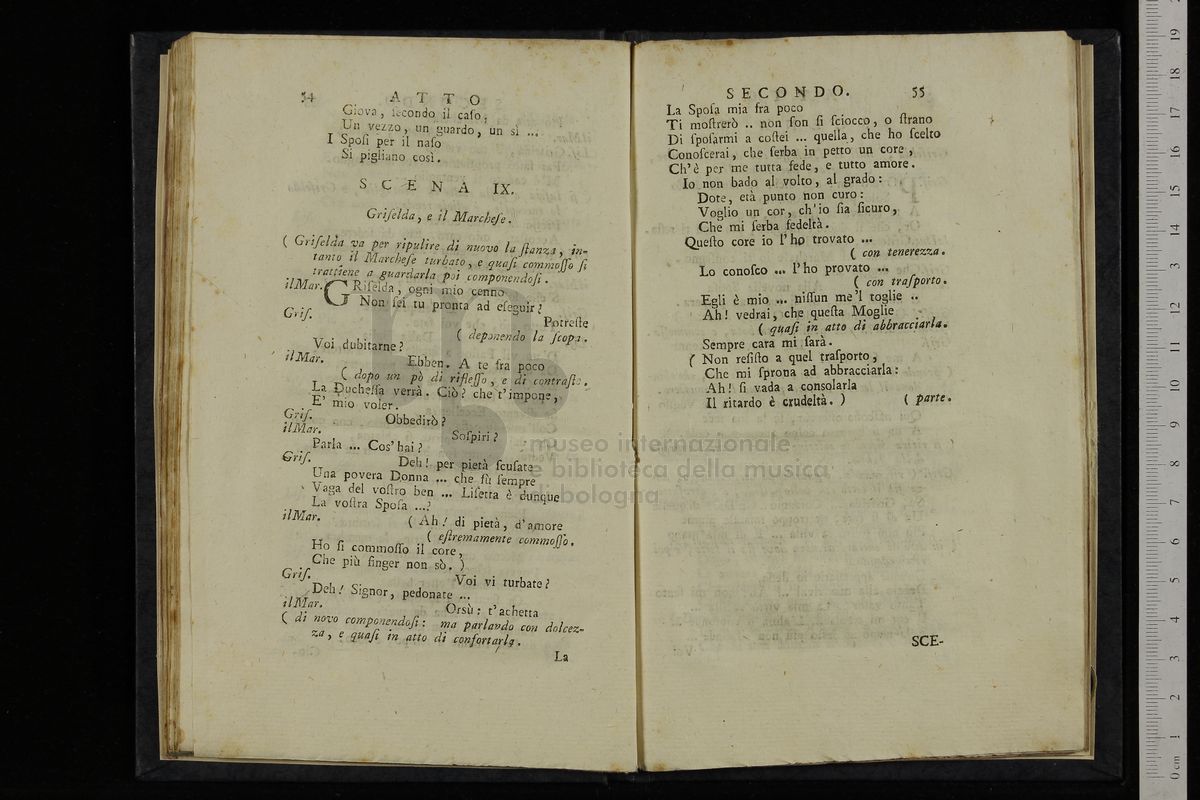 54 ATTO
Giova, secondo il caso,
Un vezzo, un guardo, un sì ...
I Sposi per il naso
Si pigliano così.
SCENA IX.
Griselda, e il Marchese.
( Griselda va per ripulire di nuovo la stanza, in-
tanto il Marchese turbato, e quasi commosso si
trattiene a guardarla poi componendosi.
ilMar. GRiselda, ogni mio cenno
Non sei tu pronta ad eseguir?
Gris. Potreste
( deponendo la scopa.
Voi dubitarne?
ilMar. Ebben. A te fra poco
( dopo un pò di riflesso, e di contrasto.
La Duchessa verrà. Ciò? che t'impone,
E' mio voler.
Gris. Obbedirò?
ilMar. Sospiri?
Parla ... Cos'hai?
Gris. Deh! per pietà scusate
Una povera Donna ... che fù sempre
Vaga del vostro ben ... Lisetta è dunque
La vostra Sposa ...?
ilMar. ( Ah! di pietà, d'amore
( estremamente commosso.
Ho sì commosso il core,
Che più finger non sò. )
Gris. Voi vi turbate?
Deh! Signor, pedonate ...
ilMar. Orsù: t'achetta
( di novo componendosi: ma parlando con dolcez-
za, e quasi in atto di confortarla.
La
SECONDO. 55
La Sposa mia fra poco
Ti mostrerò .. non son sì sciocco, o strano
Di sposarmi a costei ... quella, che ho scelto
Conoscerai, che serba in petto un core,
Ch'è per me tutta fede, e tutto amore.
Io non bado al volto, al grado:
Dote, età punto non curo:
Voglio un cor, ch'io sia sicuro,
Che mi serba fedeltà.
Questo core io l'ho trovato ...
( con tenerezza.
Lo conosco ... l'ho provato ...
( con trasporto.
Egli è mio ... nissun me'l toglie ..
Ah! vedrai, che questa Moglie
( quasi in atto di abbracciarla.
Sempre cara mi sarà.
( Non resisto a quel trasporto,
Che mi sprona ad abbracciarla:
Ah! si vada a consolarla
Il ritardo è crudeltà. ) ( parte.
SCE-
museo internazionale
e biblioteca della musica
di bologna
0 cm 1 2 3 4 5 6 7 8 9 10 11 12 13 14 15 16 17 18 19